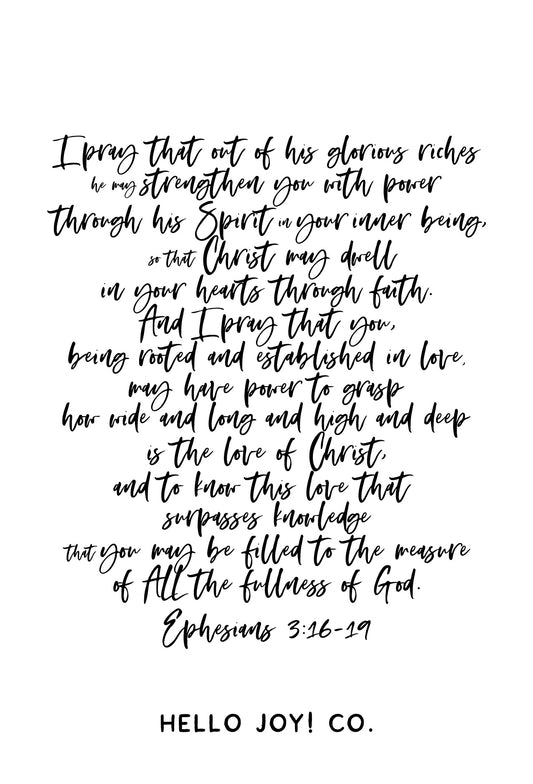 I pray that out of his glorious riches
he may strengthen you with power
through his Spirit in your inner being,
so that Christ may dwell
in your hearts through faith.
And I pray that you,
being rooted and established in love,
may have power to grasp
how wide and long and high and deep
is the love of Christ,
and to know this love that
surpasses knowledge
that you may be filled to the measure
of All the fullness of God.
Ephesians 3:16-19
HELLO JOY! CO.